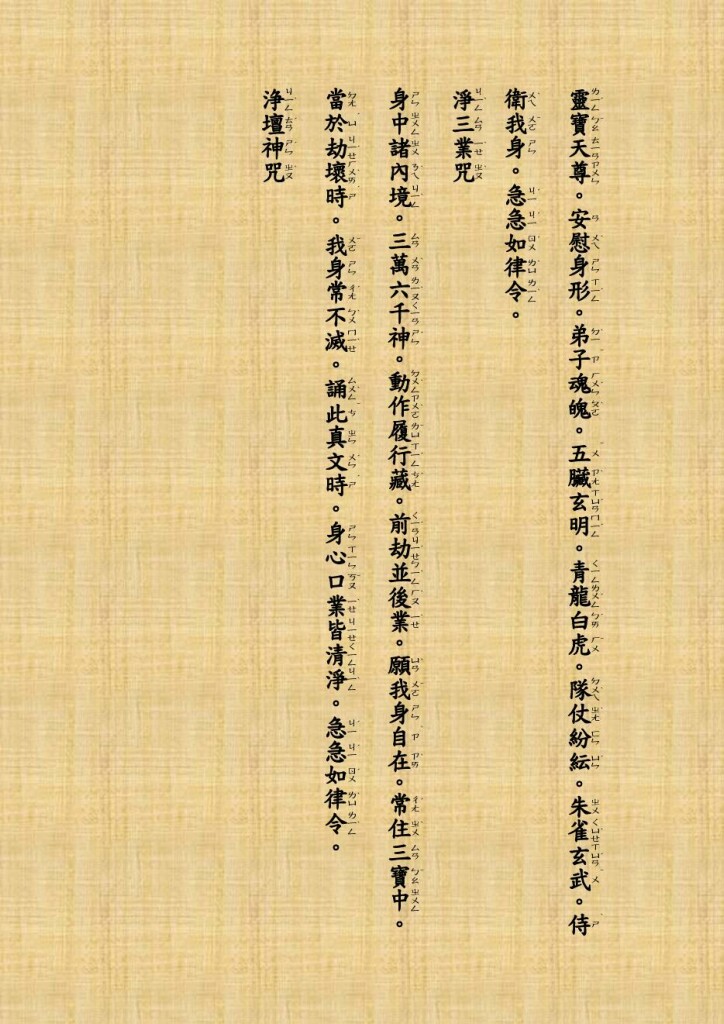 靈寶天尊。安慰身形。弟子魂魄。五臟玄明。青龍白虎。隊仗紛紜。朱雀玄武。侍
衛我身。急急如律令。
淨三業咒
身中諸內境。三萬六千神。動作履行藏。前劫並後業。願我身自在。常住三寶中。
當於劫壞時。我身常不滅。誦此真文時。身心口業皆清淨。急急如律令。
淨壇神咒